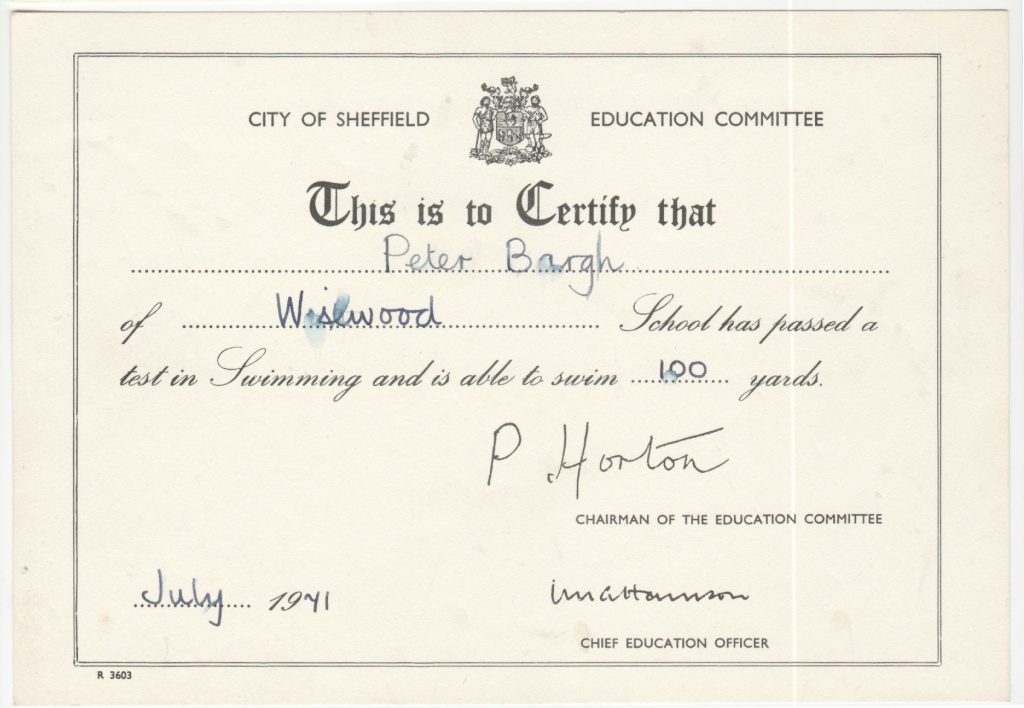 CITY OF SHEFFIELD EDUCATION COMMITTEE
This is to Certify that
Peter Bargh
of Wisewood School has passed a
test in Swimming and is able to swim 100 yards.
P. Horton
CHAIRMAN OF THE EDUCATION COMMITTEE
July 1971
CHIEF EDUCATION OFFICER
R 3603